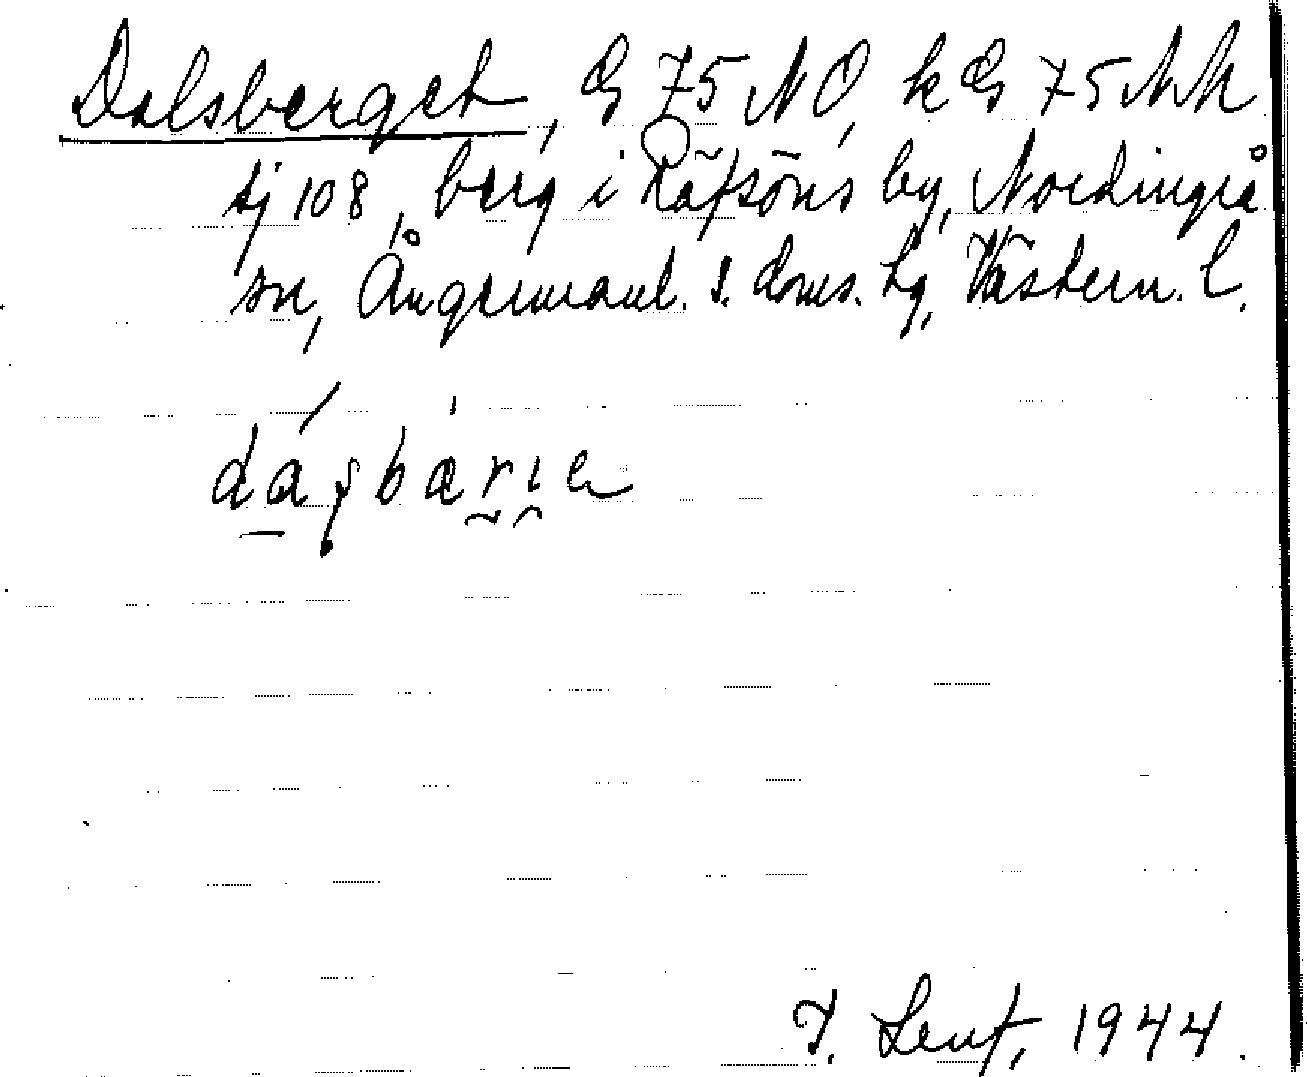 Dalsberget, G 75 NO, k G 75 NN
sj 108, berg i Räfsöns by, Nordingrå
sn, Ångermanl. s. doms. hg, Västern. l.
T. Lenf, 1944.